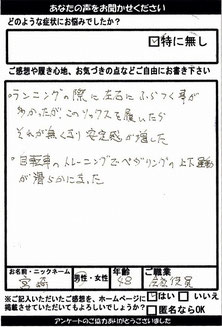 あなたの声をお聞かせください
どのような症状にお悩みでしたか?
☑特に無し
ご感想や履き心地、お気づきの点などご自由にお書き下さい
・ランニングの際に左右にふらつく事が
あったが、このソックスを履いたら
それが無くなり安定感が増した
・自転車のトレーニングでペダリングの上下運動
が滑らかになった
お名前・ニックネーム
宮崎
男性・女性
年齢
48
ご職業
会社役員
※ご記入いただいたご感想を、ホームページに
掲載させていただいてもよろしいでしょうか?
☑はい
□いいえ
□匿名ならOK
アンケートのご協力ありがとうございました